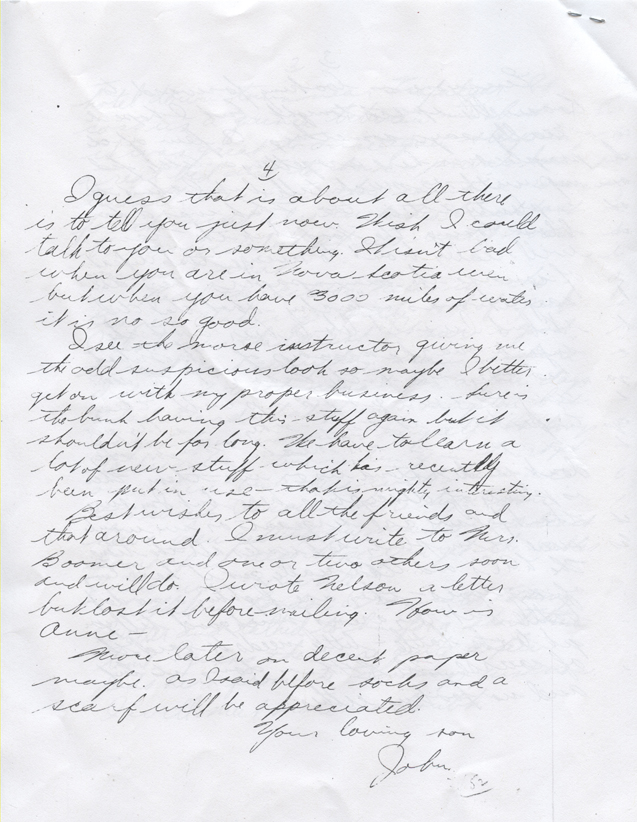 4
I guess that is about all there
is to tell you just now. Wish I could
talk to you or something. It isn't bad
when you are in Nova Scotia even
but when you have 3000 miles of water
it is no so good.
I see the morse instructor giving me
the odd suspicious look so maybe I better
get on with my proper business. Sure is
the bunk having this stuff again but it
shouldn't be for long. We have to learn a
lot of new stuff which has recently
been put in use - that is mighty interesting.
Best wishes to all the friends and
that around. I must write to Mrs.
Boomer and one or two others soon
and will do. I wrote Nelson a letter
but lost it before mailing. How is
Anne -
More later on decent paper
maybe. As I said before socks and a
scarf will be appreciated.
Your loving son
John